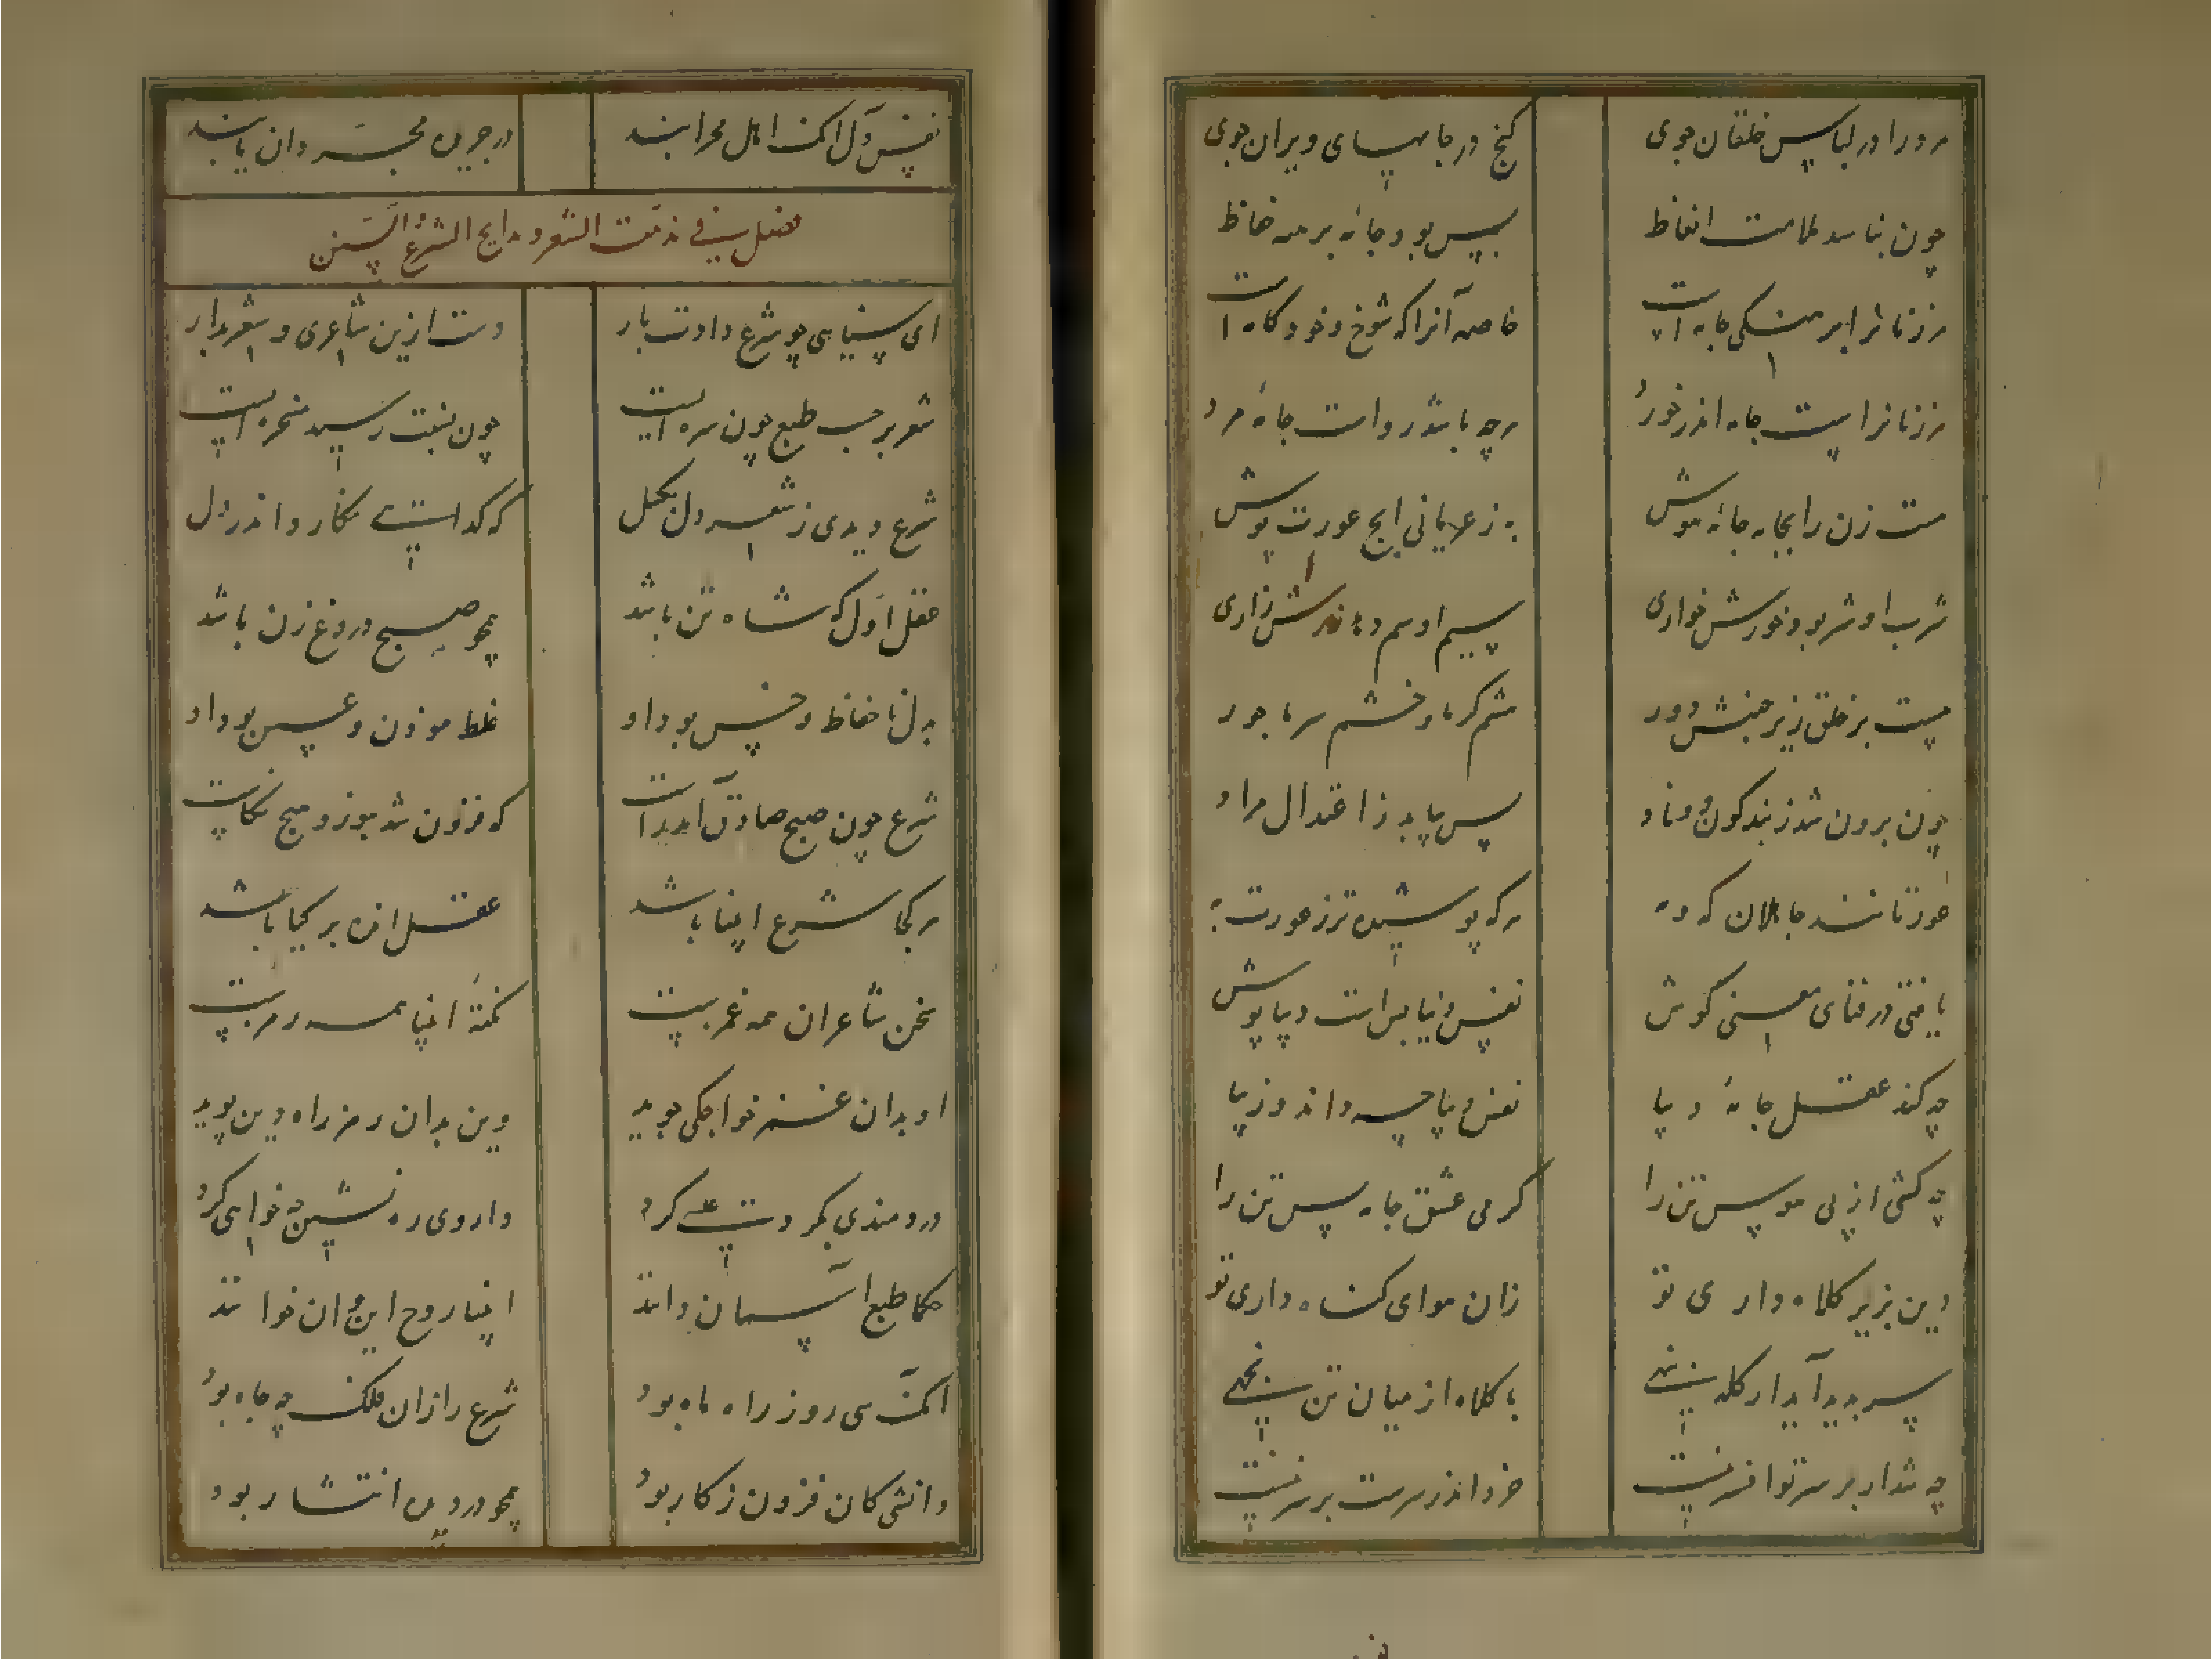 مرد را در لباس خلقان جوی گنج در جایهای ویران جوی
چون نباشد ملامت الفاظ بس بود جامهٔ برهنه حفاظ
مر زنانرا برهنگی جامه است خاصه آنرا که شوخ و خودکامه است
مر زنانراست جامه اندر خورد هرچه باشد رواست جامهٔ مرد
مست زن را بجامه جامهٔ موش به ز عریانی ایچ عورت پوش
خشم گرما و خشم سرما جور
چون برون شد ز بند کون و فساد پس بیابد ز اعتدال مراد
عورتانند جاهلان که و مه هر که پوشیده‌تر ز عورت به
یافتی در فنای معنی گوش نفس دنیا بس است دیباپوش
چه کند عقل جامهٔ دیبا نقش دیبا چه داند از دیبا
چه کشی از پی هوس تن را گرمی عشق جامه بس تن را
دین بزیر کلاه داری تو زان هوای گناه داری تو
سر پدید آید ار کله بنهی با کلاه از میان تن بجهی
چه شد ار بر سر تو افسر نیست خرد اندر سرت بر سر نیست
نفس و آل آنک اهل محرابند در جریده مجردان یابند
فصل فی مذمت الشعر و مدایح الشرع السنی
ای سنایی چو شرع دادت بار دست ازین شاعری و شعر بدار
شعر بر حسب طبع چون سره است چون بنبت رسید مسخره است
شرع دیدی ز شعر دل بگسل که گدایی نگارد اندر دل
عقل اول که شاه تن باشد همچو صبح دروغ زن باشد
غلط موزون و بود او
شرع چون صبح صادق آمد راست که فزون شد بروز و هیچ نکاست
هر کجا شرع انبیا باشد عقل اندر کجا باشد
سخن شاعران همه غمزیست نکتهٔ انبیا همه رمزیست
او بدان غمز خواجگی جوید وین بدان رمز راه دین پوید
دردمندی بگرد عیسی گرد داروی ره نشین چه خواهی کرد
حکما طبع آسمان دانند انبیا روح این و آن خوانند
آنک سی روز راه ماه بود شرع را زان ملک چه جاه بود
دانشی کان فزون ز کار بود همچو در دیده انتشار بود